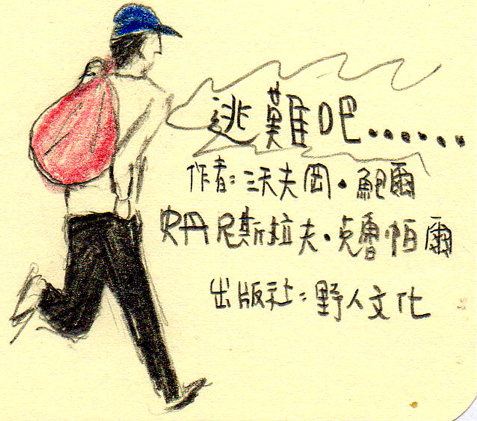 逃難吧......
作者:沃夫岡·鮑爾
史丹尼斯拉夫·克魯帕爾
出版社:野人文化